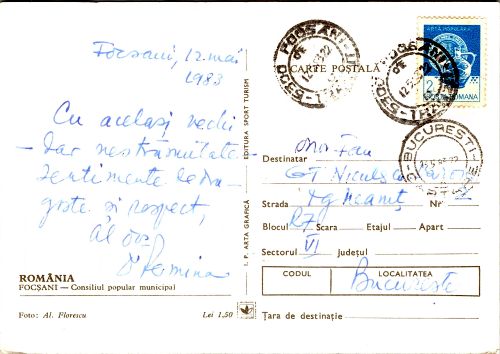 Focșani, 12 mai
1983
Cu același vechi
– dar nestrămutate –
sentimente de dra-
goste și respect,
al dvs.
ROMÂNIA
FOCȘANI — Consiliul popular municipal
Foto: Al. Florescu Lei 1,50
EDITURA SPORT TURISM
I. P. ARTA GRAFICĂ
CARTE POȘTALĂ
FOCȘANI
FOCȘANI
POȘTA ROMANA
BUCUREȘTI
Destinatar
GT Niculescu
Strada Tg Neamț Nr. 2
Blocul R7 Scara Etajul Apart
Sectorul VI județul
CODUL LOCALITATEA
București
Țara de destinație